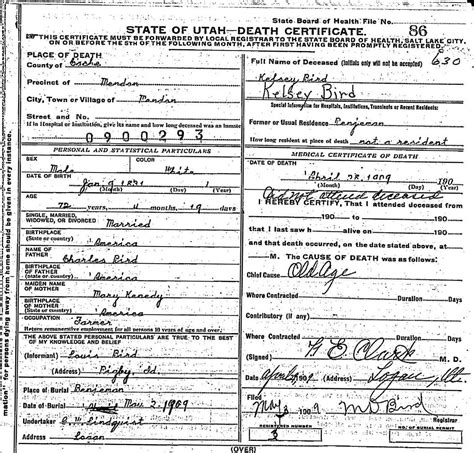 State Board of Health File No.
86
STATE OF UTAH—DEATH CERTIFICATE.
THIS CERTIFICATE MUST BE FORWARDED BY LOCAL REGISTRAR TO THE STATE BOARD OF HEALTH, SALT LAKE CITY,
ON OR BEFORE THE 5TH OF THE FOLLOWING MONTH, AFTER FIRST HAVING BEEN PROMPTLY REGISTERED.
630
PLACE OF DEATH
County of Cache
Precinct of Mendon
City, Town or Village of Mendon
Street and No.
If in Hospital or Institution, give its name and how long deceased was an inmate
0900293
PERSONAL AND STATISTICAL PARTICULARS
SEX COLOR
Male White
DATE OF BIRTH
(Month) (Day) (Year)
AGE
years months days
SINGLE, MARRIED,
WIDOWED, OR DIVORCED Married
BIRTHPLACE
(State or country) America
NAME OF
FATHER Charles Bird
BIRTHPLACE
OF FATHER
(State or country) America
MAIDEN NAME
OF MOTHER Mary Kenedy
BIRTHPLACE
OF MOTHER
(State or country) America
OCCUPATION Farmer
Return remunerative employment for all persons 10 years of age and over.
THE ABOVE STATED PERSONAL PARTICULARS ARE TRUE TO THE BEST
OF MY KNOWLEDGE AND BELIEF
(Informant) Louis Bird
(Address) Rigby, Id.
Place of Burial Benjeman
Date of Burial May 2 1909
Undertaker Lindquist
Address Logan
Full Name of Deceased (Initials only will not be accepted)
Kelsey Bird
Kelsey Bird
Special Information for Hospitals, Institutions, Transients or Recent Residents:
Former or Usual Residence Benjeman
How long resident at place of death not a resident
MEDICAL CERTIFICATE OF DEATH
DATE OF DEATH
April 28, 1909 190
(Month) (Day) (Year)
Did not attend deceased
I HEREBY CERTIFY, That I attended deceased from
190 to 190
that I last saw h alive on 190
and that death occurred, on the date stated above, at
M. The CAUSE OF DEATH was as follows:
Chief Cause Old Age
Where Contracted Duration Days
Contributory
Where Contracted Duration Days
(Signed) M. D.
1909 (Address) Logan, Ut.
Filed May 1909 M D Bird
Registrar
REGISTERED NUMBER NO. OF BURIAL PERMIT
3
(OVER)